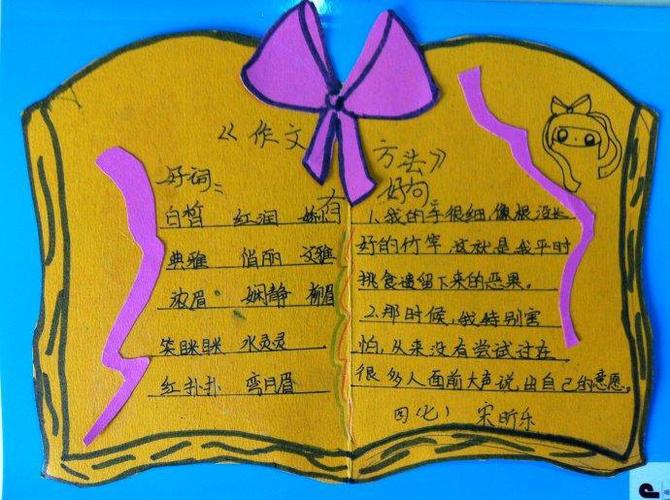 《作文方法》
好词：
白皙 红润
典雅 俏丽 文雅
浓眉 娴静 柳眉
笑眯眯 水灵灵
红扑扑 弯月眉
好句
1.我的手很细,像根没长
好的竹竿,这就是我平时
挑食遗留下来的恶果。
2.那时候,我特别害
怕,从来没有尝试过在
很多人面前大声说出自己的意愿。
四(七) 宋昕乐